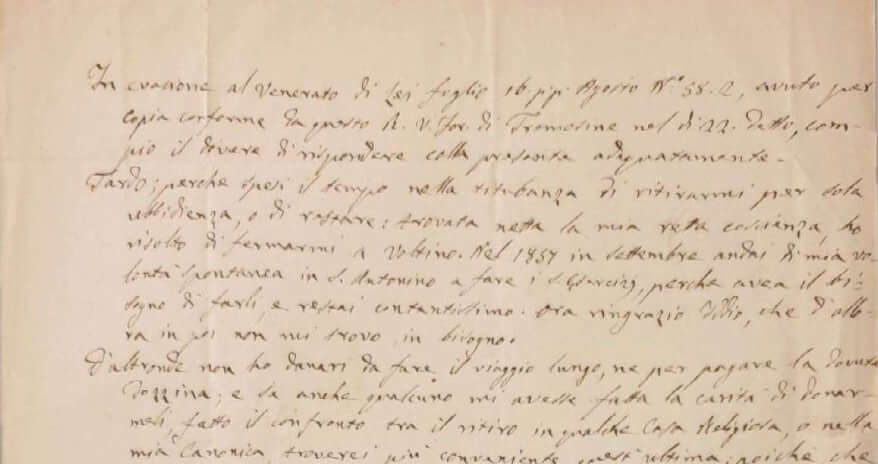 In evasione al Venerato di Lei foglio 16. p.p. Agosto N.° 58.2, avuto per
copia conforme da questo R. V. For. di Tremosine nel dì 22. detto, com-
pio il dovere di rispondere colla presente adeguatamente.
Tardo; perche spesi il tempo nella titubanza di ritirarmi per sola
ubbidienza, o di restare: trovata netta la mia retta coscienza, ho
risolto di fermarmi a Voltino. Nel 1857 in settembre andai di mia vo-
lontà spontanea in S. Antonino a fare i S. Esercizj, perche avea il bi-
sogno di farli, e restai contentissimo. Ora ringrazio Iddio, che d'allo-
ra in poi non mi trovo in bisogno.
D'altronde non ho danari da fare il viaggio lungo, ne per pagare la dovuta
Dozzina; e se anche qualcuno mi avesse fatta la carità di donar-
meli, fatto il confronto tra il ritiro in qualche Casa Religiosa, o nella
mia Canonica, troverei più conveniente quest'ultima; poichè che